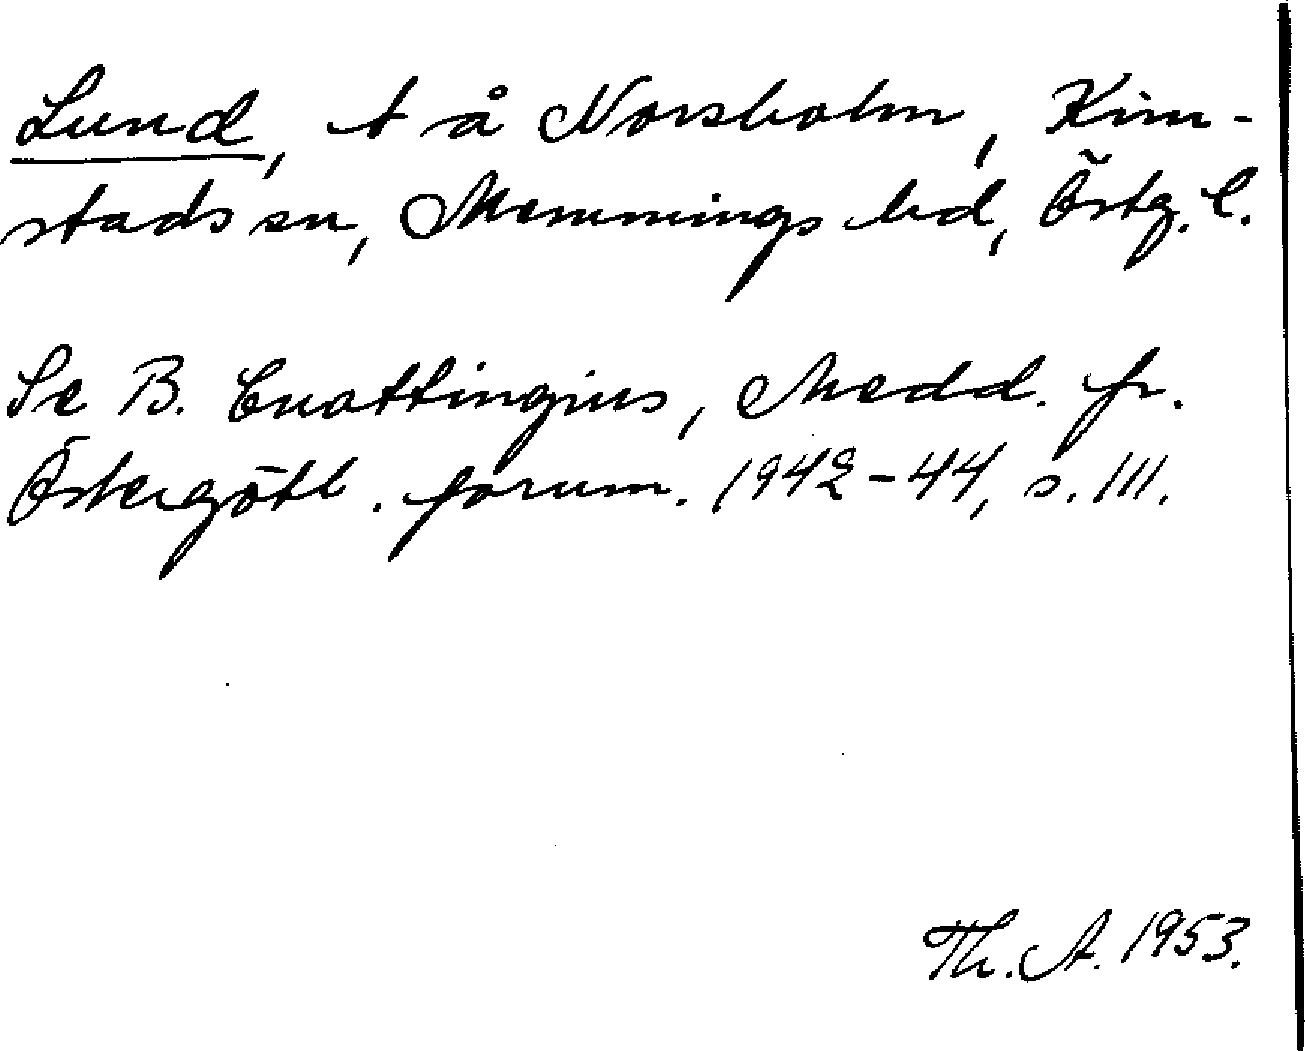 Lund, t å Norsholm, Kim-
stads sn, Memmings hd, Östg. l.
Se B. Cnattingius, Medd. fr.
Östergötl. fornm. 1942-44, s. 111.
Th. A. 1953.